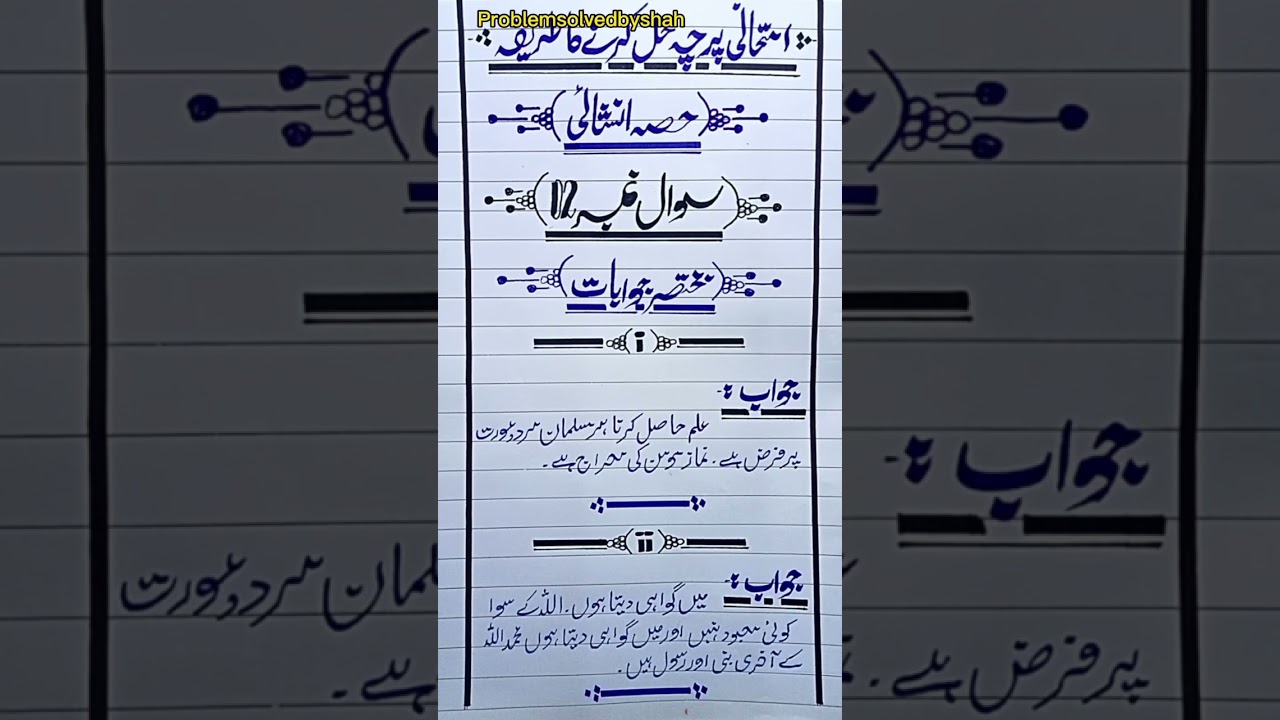 Problemsolvedbyshah
امتحانی پرچہ حل کرنے کا طریقہ
(حصہ انشائی)
(سوال نمبر 02)
(مختصر جوابات)
(i)
جواب :-
علم حاصل کرنا ہر مسلمان مرد و عورت
پر فرض ہے۔ نماز مومن کی معراج ہے۔
(ii)
جواب :-
میں گواہی دیتا ہوں۔ اللہ کے سوا
کوئی معبود نہیں اور میں گواہی دیتا ہوں محمد اللہ
کے آخری نبی اور رسول ہیں۔